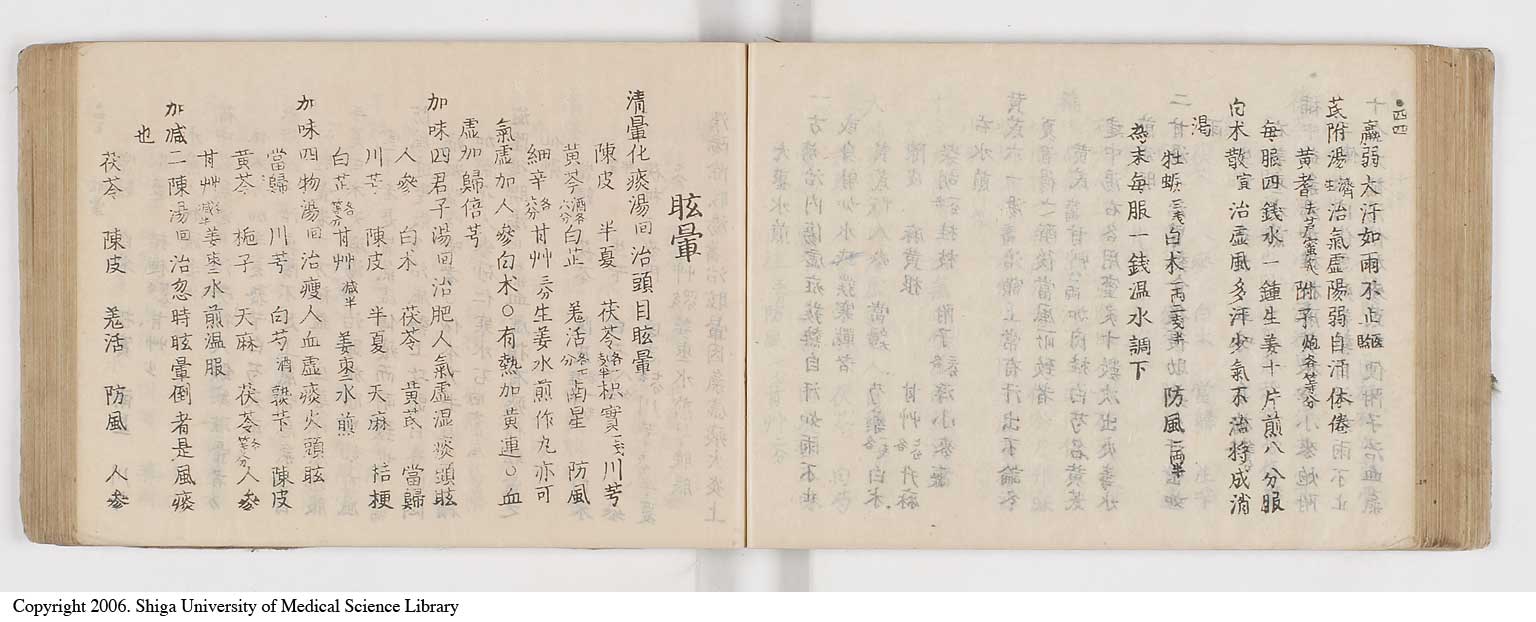 四四
羸弱大汗如雨不止
芪附湯 濟生 治氣虛陽弱自汗体倦
黄耆 去芦蜜炙 附子 炮各等分
毎服四銭水一鍾生姜十片煎八分服
白术散 宣 治虚風多汗少気不治将成消
渇
牡蛎 三戔 白术 一两二戔半 防風 二两半
為末毎服一銭温水調下
眩暈
清暈化痰湯 回 治頭目眩暈
陳皮 半夏 茯苓 各一戔半 枳實 一戔 川芎
黄芩 酒各六分 白芷 羗活 南星 防風
細辛 各六分 甘艸 三分 生姜水煎作丸亦可
氣虚加人参白术○有熱加黄連○血
虚加歸倍芎
加味四君子湯 回 治肥人氣虚湿痰頭眩
人參 白术 茯苓 黄芪 當歸
川芎 陳皮 半夏 天麻 桔梗
白芷 各等分 甘艸 減半 姜棗二水煎
加味四物湯 回 治瘦人血虚痰火頭眩
當歸 川芎 白芍 酒 熟芐 陳皮
黄芩 栀子 天麻 茯苓 各等分 人參
甘艸 減半 姜棗二水煎温服
加减二陳湯 回 治忽時眩暈倒者是風痰
也
茯苓 陳皮 羗活 防風 人參
Copyright 2006. Shiga University of Medical Science Library